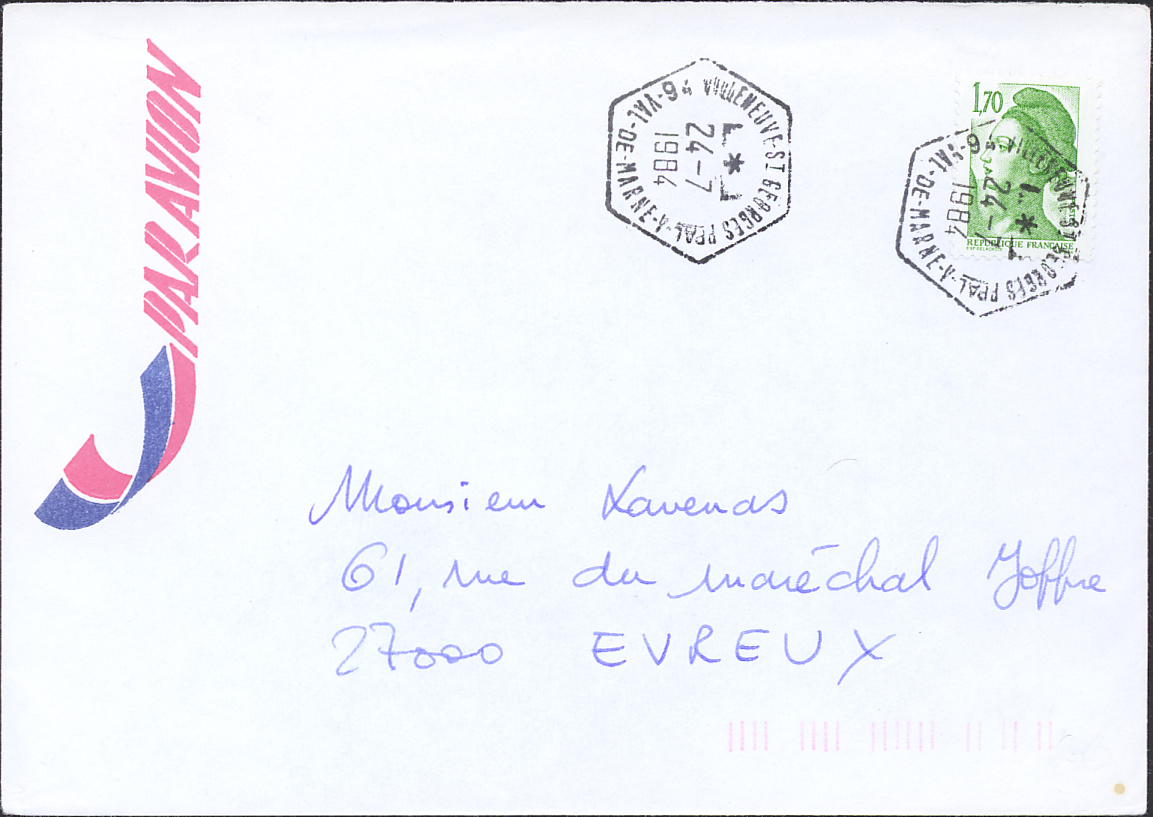 PAR AVION
VILLENEUVE-ST GEORGES PPAL-A
94 -VAL-DE-MARNE-
*
24-7
1984
1,70
REPUBLIQUE FRANÇAISE
94 -VAL-DE-MARNE-A
VILLENEUVE-ST GEORGES PPAL
*
24-7
1984
Monsieur Lavenas
61, rue du maréchal Joffre
27000 EVREUX